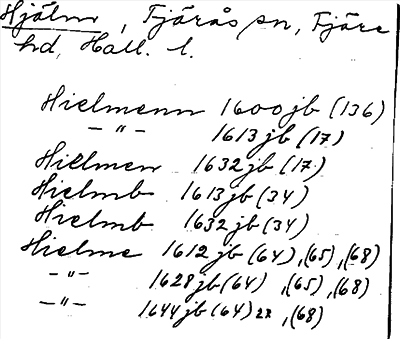 Hjälm, Fjärås sn, Fjäre
hd, Hall. l.
Hielmenn 1600 jb (136)
—"— 1613 jb (17)
Hielmen 1632 jb (17)
Hielmb 1613 jb (34)
Hielmb 1632 jb (34)
Hielme 1612 jb (64), (65), (68)
—"— 1628 jb (64), (65), (68)
—"— 1644 jb (64) 2x, (68)